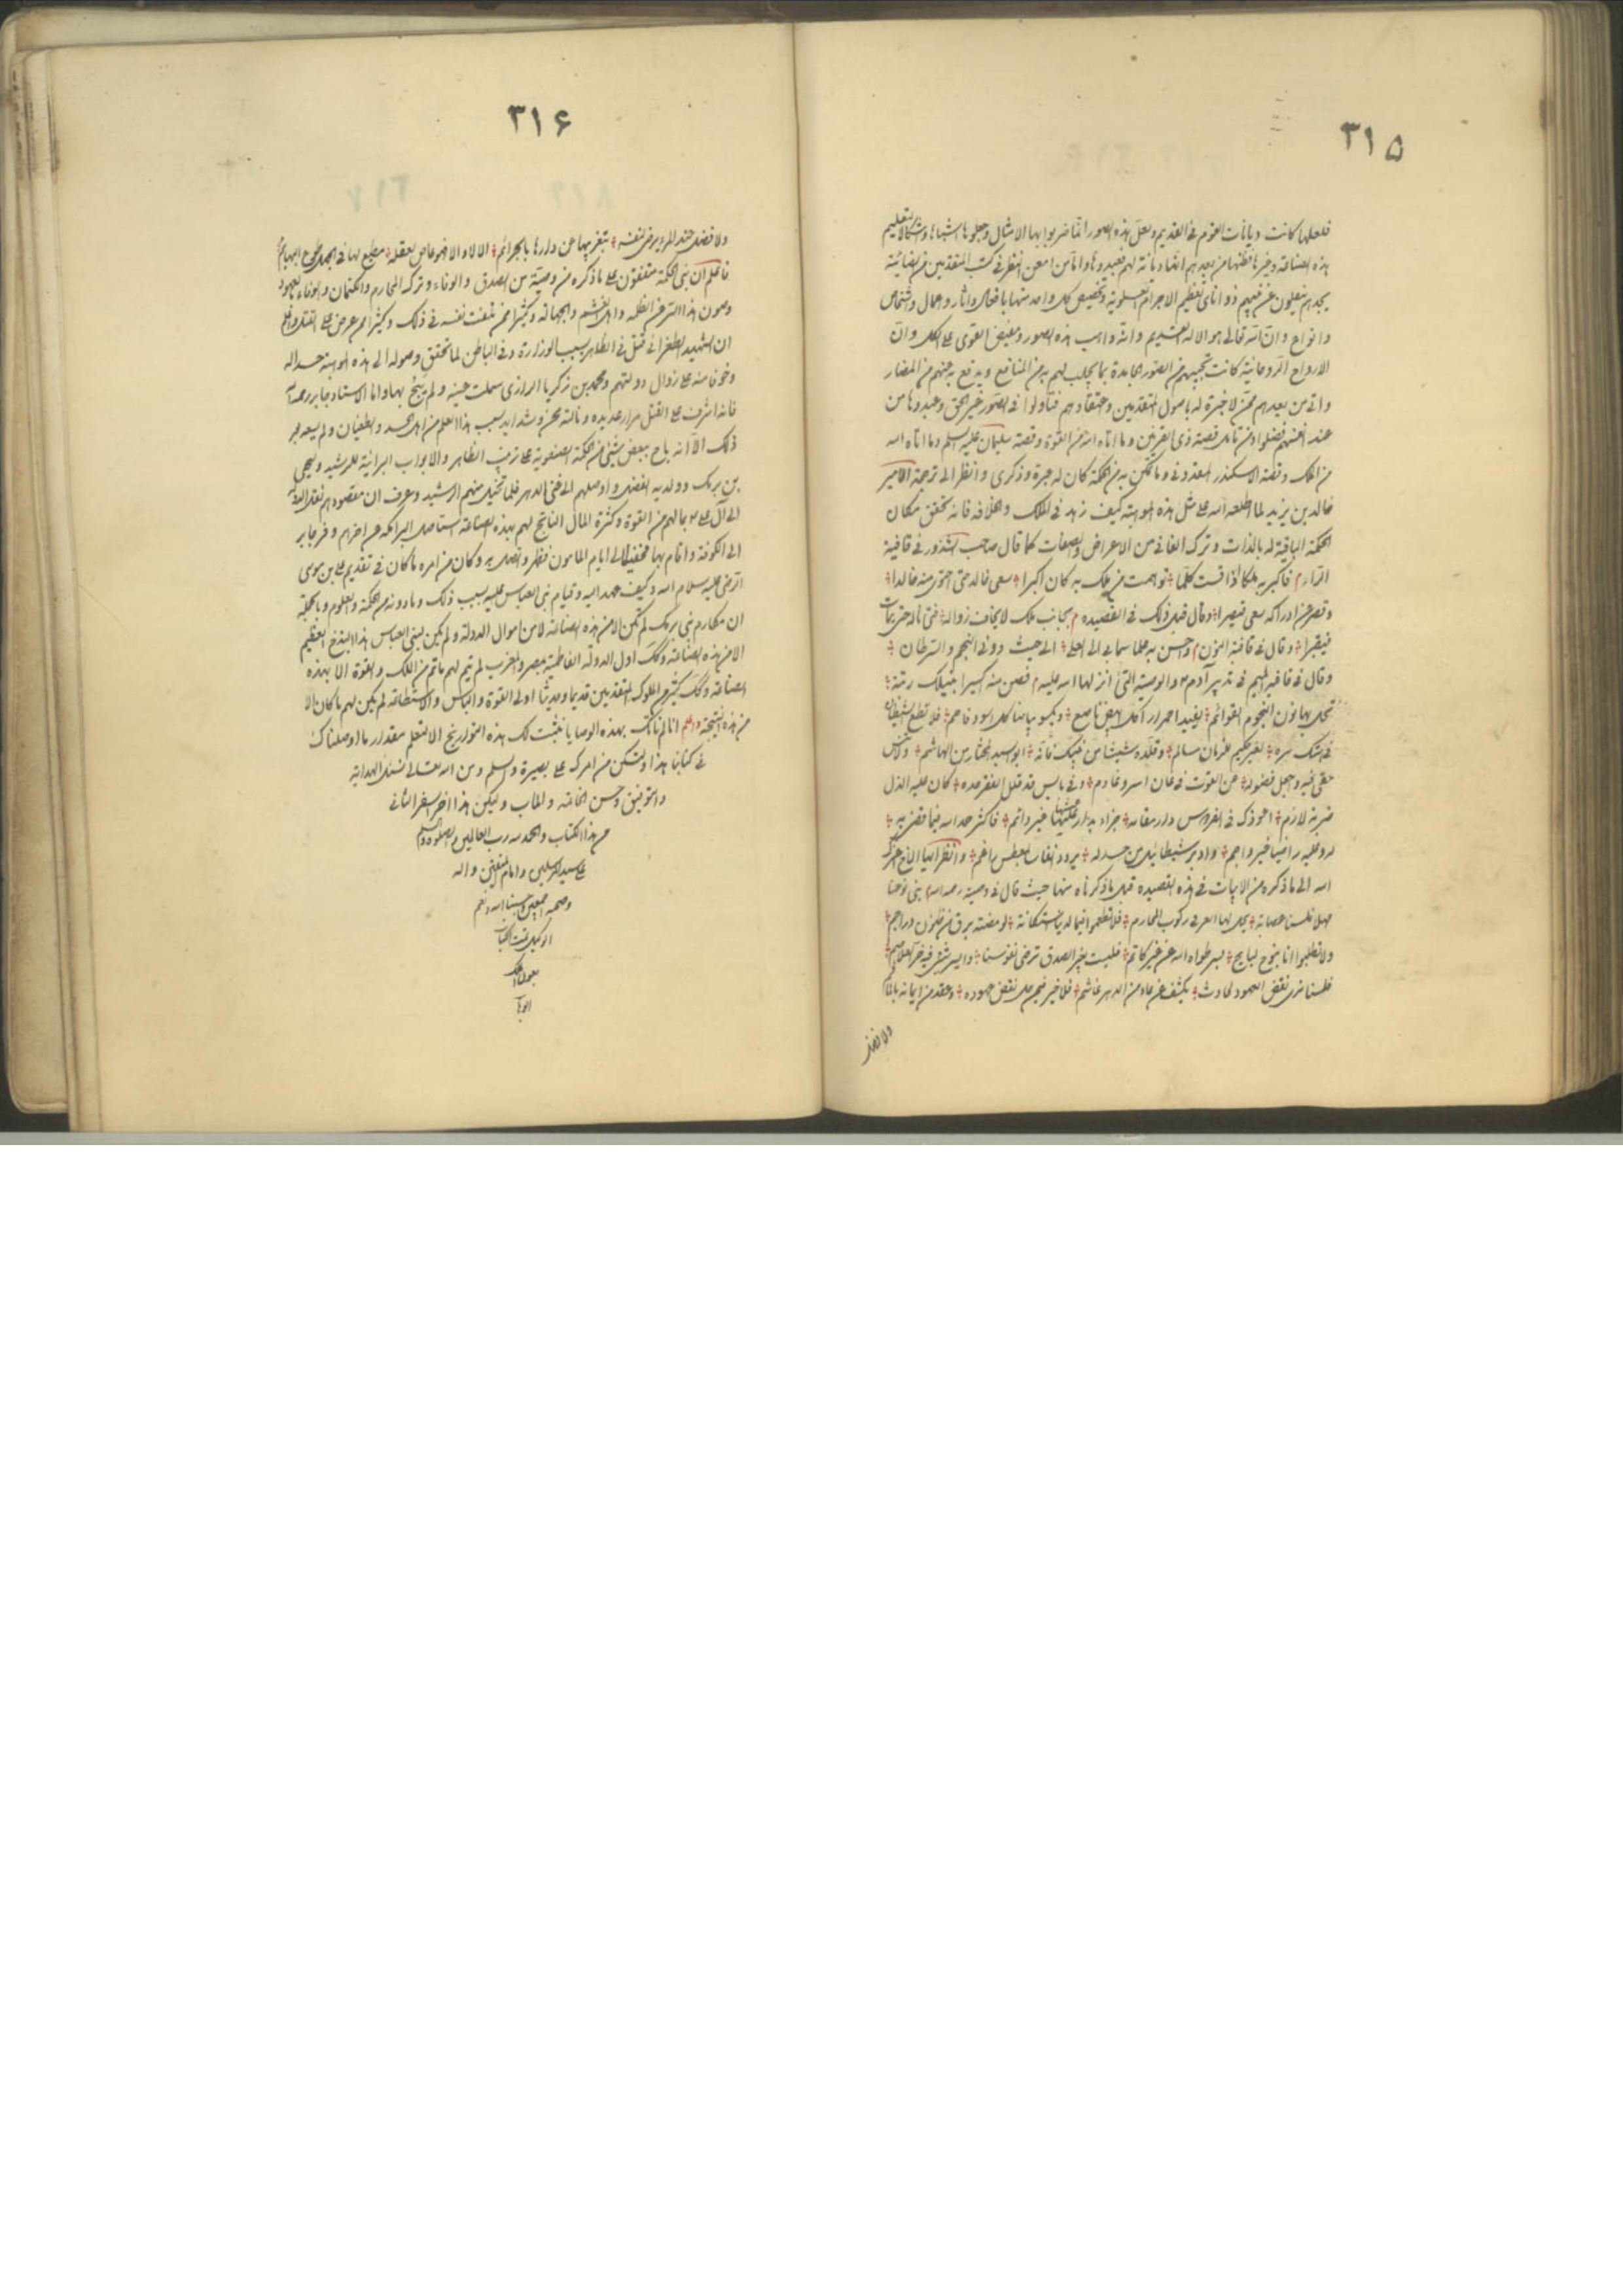 ٣١٥
فلعلها كانت ديانات القوم فى القديم ولعل هذه الصور انما ضربوا بها الامثال وجعلوها اشباها وشكالا لتعليم
هذه الصناعة وغيرها فظنها من بعدهم انها ديانة لهم فعبدوها واما من امعن النظر فى كتب المتقدمين
يجدهم ينقلون عن تعظيم الاجرام العلوية وتخصيص كل واحد منها بافعال واثار واعمال واشخاص
وانواع وان الله تعالى هو الاله القديم وانه واهب هذه الصور ومفيض القوى على الكل وان
الارواح الروحانية كانت تجيبهم من الصور الجامدة بما يجلب لهم به من المنافع ويدفع به عنهم من المضار
واتى من بعدهم ممن لا خبرة له باصول المتقدمين واعتقادهم فتاولوا فى الصور غير الحق وعبدوها من
عند انفسهم فضلوا ومن تامل قصة ذى القرنين وما اتاه الله من القوة وقصة سليمان عليه السلم وما اتاه الله
من الملك وقصة الاسكندر المقدونى وما تمكن به من الحكمة كان له عبرة وذكرى وانظر الى ترجمة الامير
خالد بن يزيد لما اطلعه الله على مثل هذه الموهبة كيف زهد فى الملك والخلافة فانه تحقق مكان
الحكمة الباقية له بالذات وترك الفانى من الاعراض والصفات كما قال صاحب الشذور فى قافية
الراء فاكبر به ملكا اذا قست كلما توهمت من ملك به كان اكبرا سعى خالد حتى احتوى منه خالدا
وقصر عن ادراكه سعى قيصرا وقال قبل ذلك فى القصيده بجانب ملك لا يخاف زواله فتى نال حتى مات
فيقبرا وقال فى قافية النون واحسن به علما سما بى الى العلى الى حيث دونى النجم والسرطان
وقال فى قافية الميم فى تدبير آدم والوصية التى انزلها الله عليه فصن منه اكسيرا ينيلك رتبة
تحل بها فوق النجوم القوائم يفيد احمرارا كل ابيض ناصع ويكسو بياضا كل اسود فاحم فلا تطع الشيطان
فى هتك سره لغير حكيم للزمان مسالم وقلده شيثا من بنيك فانه ابو السيد المختار من ال هاشم
ضربة لازم اعوذك فى الفردوس دار مقامة فاكثر حمد الله فيما قضى به
الله الى ما ذكره من الابيات فى هذه القصيده قبل ما ذكرناه منها حيث قال فى وصية رحمه الله بنى نوحنا
مهلا فلسنا عصابة يحل لها العرفى ركوب المحارم
ولا تطلبوا انا نبوح لبايح بسر طواه الله عن غير كاتم فليست بغير الصدق ترضى نفوسنا
فلسنا نرى نقض العهود لحادث يكشف عن عاد من الدهر غاشم فلا خير فيمن حل نقض عهوده وعقد من ايمانه بالماثم
ولا فضل
٣١٦
ولا فضل عند المرء يرضى لنفسه بتغريبها عن دارها بالجرائم
فاعلم ان بنى الحكمة متفقون على ما ذكره من وصية من الصدق والوفاء وترك المحارم والكتمان والوفاء بالعهود
وصون هذا السر عن الظلمه واهل الغشم والجهالة وكثيرا ممن تلفت نفسه فى ذلك وكثيرا من عرض على القتل
ان الشهيد الطغرائى قتل فى الظاهر بسبب الوزارة وفى الباطن لما تحقق وصوله الى هذه الموهبة حسدا له
وخوفا منه على زوال دولتهم ومحمد بن زكريا الرازى سملت عينيه ولم يبح بها واما الاستاد جابر رحمه الله
فانه اشرف على القتل مرارا عديده ونالته محن وشدايد بسبب هذا العلم من اهل الحسد والطغيان ولم يسعه غير
ذلك الا انه باح ببعض شيئ من الحكمة الصنعوية على ترتيب الظاهر والابواب البرانية للرشيد وليحيى
بن برمك وولديه الفضل واوصلهم الى غنى الدهر فلما تخيل منهم الرشيد وعرف ان مقصودهم نقل الدولة
الى آل على بما لهم من القوة وكثرة المال الناتج لهم بهذه الصناعة استاصل البرامكه عن اخرهم وفر جابر
الى الكوفة واقام بها مختفيا الى ايام المامون فظهر واتصل به وكان من امره ما كان فى تقديم على بن موسى
الرضى عليه سلام الله وكيف عهد اليه وقيام بنى العباس عليه بسبب ذلك وما دونه من الحكمة والعلوم وبالجملة
ان مكارم بنى برمك لم تكن الا من هذه الصناعة لا من اموال الدولة ولم يكن لبنى العباس هذا البذخ العظيم
الا من هذه الصناعة وكذلك اول الدولة الفاطمية بمصر والمغرب لم يتم لهم ما تم من الملك والقوة الا بهذه
الصناعة وكذلك كثير من الملوك المتقدمين قديما وحديثا اولى القوة والباس والاستطاعة لم يكن لهم ما كان الا
من هذه النتيجة واعلم انا لم ناتك بهذه الوصايا ونثبت لك هذه التواريخ الا لتعلم مقدار ما اوصلناك
فى كتابنا هذا ولتكن من امرك على بصيرة والسلم ومن الله تعالى نسئل الهداية
والتوفيق وحسن الخاتمة والماب وليكن هذا اخر السفر الثانى
من هذا الكتاب والحمد لله رب العالمين والصلوة والسلم
على سيد المرسلين وامام المتقين واله
وصحبه اجمعين وحسبنا الله ونعم
الوكيل تمت الكتاب
بعون الملك
الوهاب